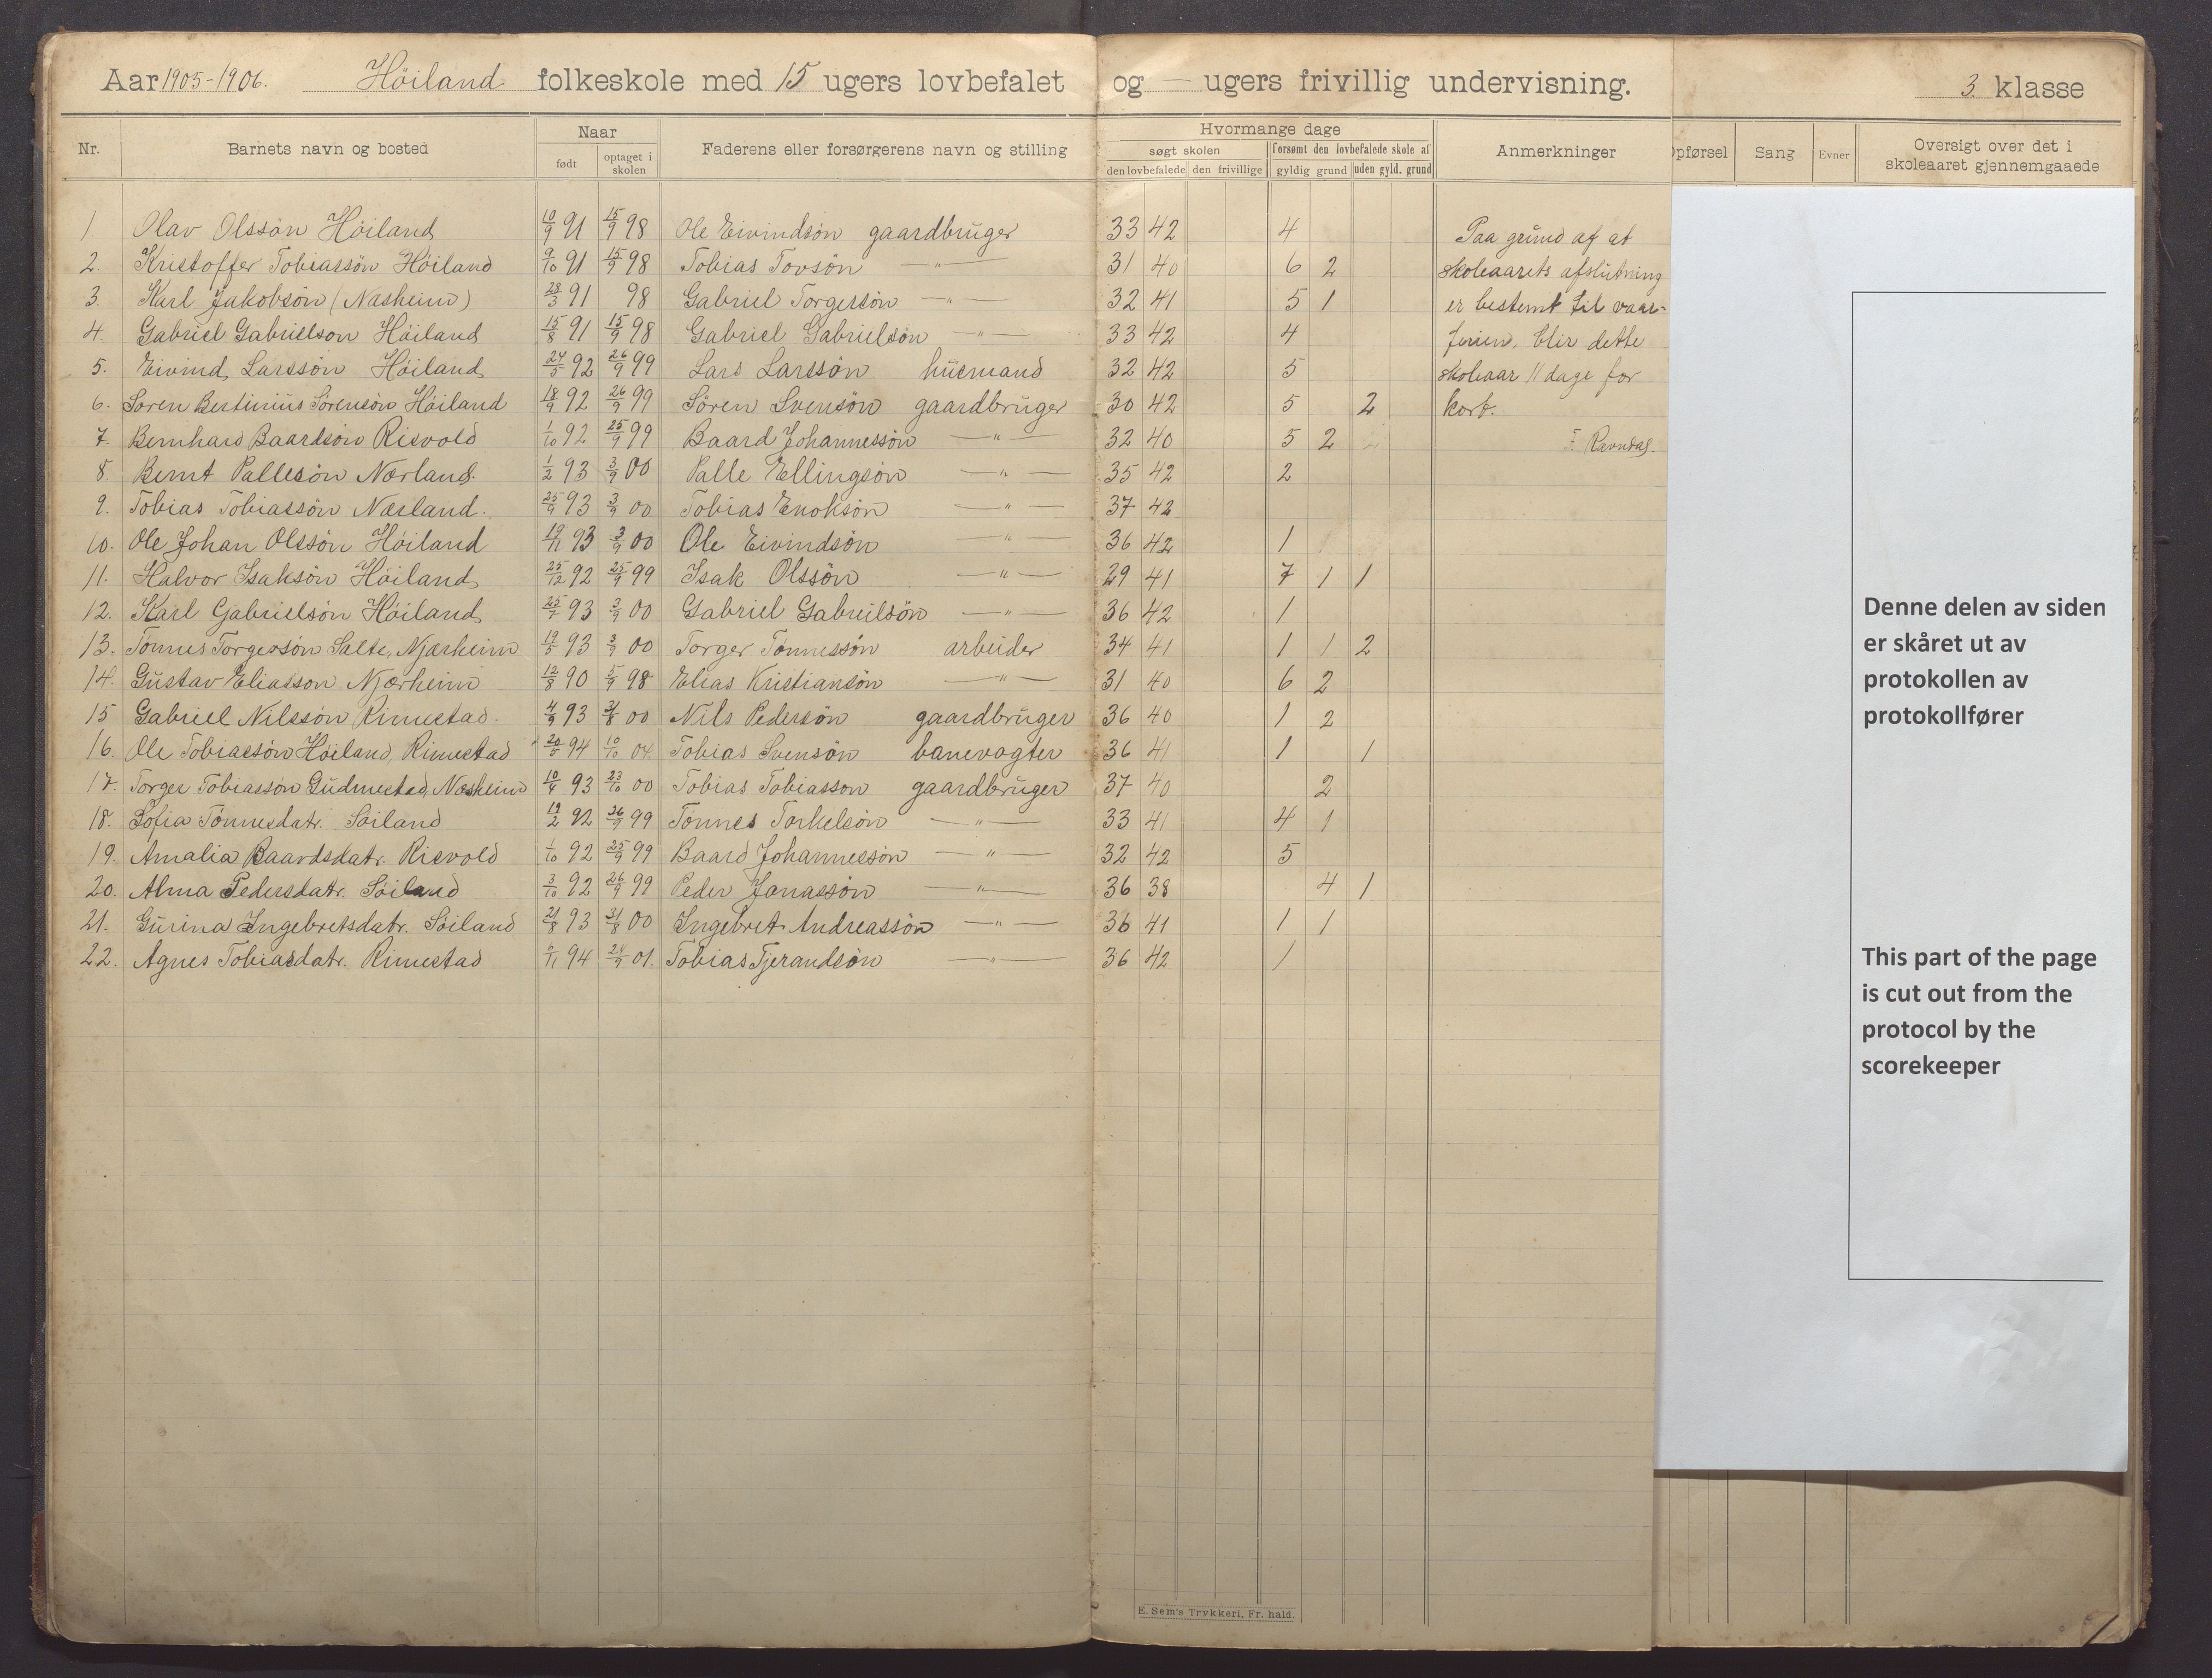 Aar 1905-1906. Höiland folkeskole med 15 ugers lovbefalet og — ugers frivillig undervisning. 3. klasse
Nr. Barnets navn og bosted Naar født optaget i skolen Faderens eller forsørgerens navn og stilling Hvormange dage søgt skolen den lovbefalede den frivillige forsømt den lovbefalede skole af gyldig grund uden gyld. grund Anmerkninger Opførsel Sang Evner Oversigt over det i skoleaaret gjennemgaaede
1. Olav Olssön Höiland 10/9 91 15/9 98 Ole Eivindsön gaardbruger 33 42 4 Paa grund af at
2. Kristoffer Tobiassön Höiland 9/10 91 15/9 98 Tobias Tovsön —"— 31 40 6 2 skoleaarets afslutning
3. Karl Jakobsön (Næsheim) 28/3 91 98 Gabriel Torgersön —"— 32 41 5 1 er bestemt til vaar-
4. Gabriel Gabrielson Höiland 15/8 91 15/9 98 Gabriel Gabrielsön —"— 33 42 4 ferien, blir dette
5. Eivind Larssön Höiland 24/5 92 26/9 99 Lars Larssön husmand 32 42 5 skoleaar 11 dage for
6. Sören Bertinius Sörensön Höiland 18/9 92 26/9 99 Sören Svensön gaardbruger 30 42 5 2 kort.
7. Bernhard Baardsön Risvold 1/10 92 25/9 99 Baard Johannessön —"— 32 40 5 2 T. Ravndal.
8. Bernt Pallesön Nærland. 1/2 93 3/9 00 Palle Ellingsön —"— 35 42 2
9. Tobias Tobiassön Nærland. 25/9 93 3/9 00 Tobias Enoksön —"— 37 42
10. Ole Johan Olssön Höiland 19/11 93 3/9 00 Ole Eivindsön —"— 36 42 1
11. Halvor Isaksön Höiland 25/12 92 25/9 99 Isak Olssön —"— 29 41 7 1 1
12. Karl Gabrielsön Höiland 25/7 93 3/9 00 Gabriel Gabrielsön —"— 36 42 1
13. Tönnes Torgersön Salte, Njærheim 19/5 93 3/9 00 Torger Tönnessön arbeider 34 41 1 1 2
14. Gustav Eliasson Njærheim 12/8 90 5/9 98 Elias Kristiansön —"— 31 40 6 2
15 Gabriel Nilssön Rimestad. 4/9 93 31/8 00 Nils Pedersön gaardbruger 36 40 1 2
16. Ole Tobiassön Höiland, Rimestad 20/5 94 10/10 04. Tobias Svensön banevogter 36 41 1 1
17. Torger Tobiasson Gudmestad, Næsheim 10/4 93 23/10 00 Tobias Tobiasson gaardbruger 37 40 2
18. Sofia Tönnesdatr. Söiland 19/2 92 26/9 99 Tönnes Torkelsön —"— 33 41 4 1
19. Amalia Baardsdatr. Risvold 1/10 92 25/9 99 Baard Johannessön —"— 32 42 5
20. Alma Pedersdatr. Söiland 3/10 92 26/9 99 Peder Jonassön —"— 36 38 4 1
21. Gurina Ingebretsdatr. Söiland 21/8 93 31/8 00 Ingebret Andreassön —"— 36 41 1 1
22. Agnes Tobiasdatr. Rimestad 5/11 94 24/9 01. Tobias Tjerandsön —"— 36 42 1
Denne delen av siden
er skåret ut av
protokollen av
protokollfører
This part of the page
is cut out from the
protocol by the
scorekeeper
E. Sem's Trykkeri, Fr. hald.